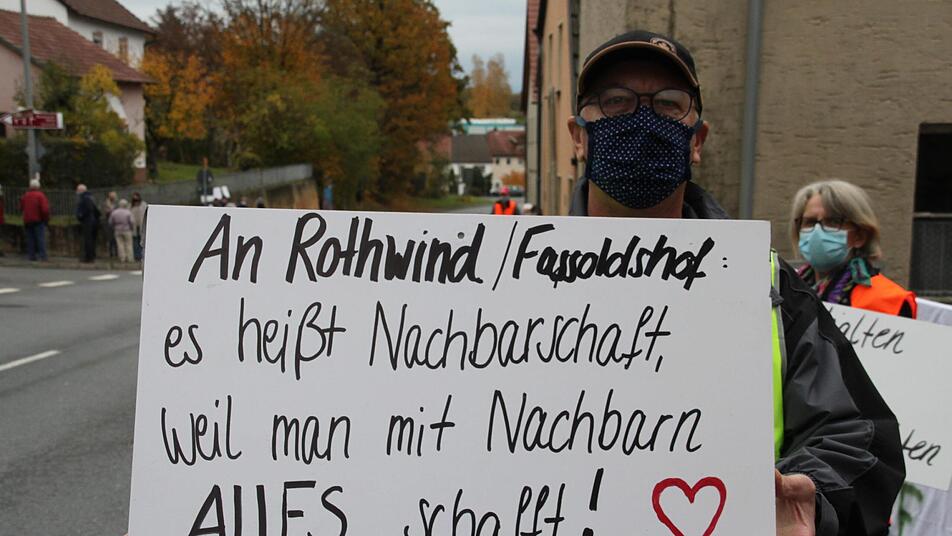 An Rothwind / Fassoldshof:
es heißt Nachbarschaft,
weil man mit Nachbarn
ALLES schafft!
halten